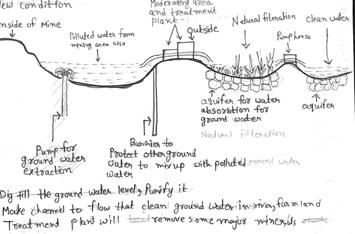 New condition
inside of Mine
Polluted water from
mining area also
Moderating area
and treatment
plant -
outside
Natural filteration
clean water
Pumphouse
aquifer for water
absorption for
ground water
Natural filteration
aquifer
Pump for
ground water
extraction
Barrier to
Protect other ground
water to mix up with polluted ground
water
Dig till the ground water level, Purify it.
Make channel to flow that clean ground water in river, farm land
Treatment plant will remove some major minerals